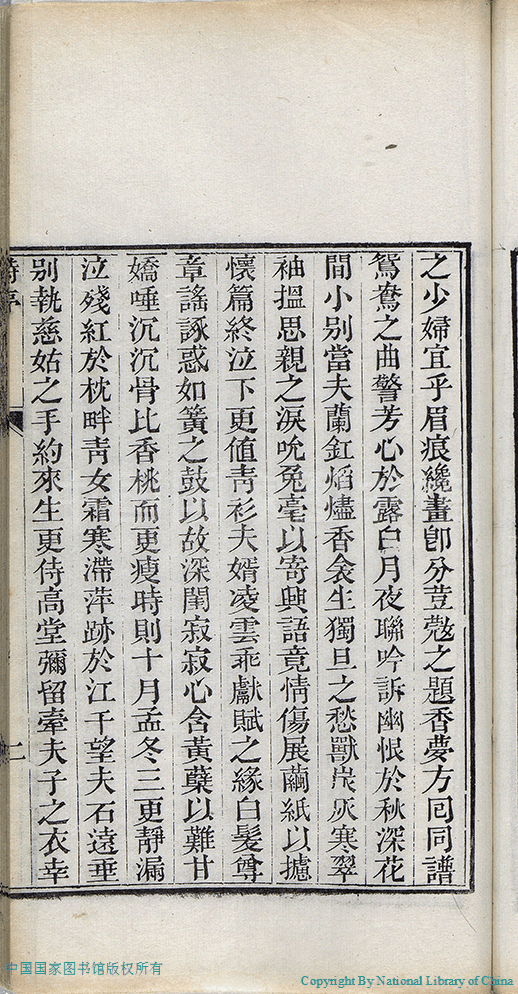 之少婦宜乎眉痕纔畫卽分荳蔻之題香夢方囘同譜
鴛鴦之曲警芳心於露白月夜聯吟訴幽恨於秋深花
間小別當夫蘭釭焰燼香衾生獨旦之愁獸炭灰寒翠
袖搵思親之淚吮兔毫以寄興語竟情傷展繭紙以攄
懷篇終泣下更值靑衫夫婿凌雲乖獻賦之緣白髮尊
章謠諑惑如簧之鼓以故深閨寂寂心含黃蘗以難甘
嬌唾沉沉骨比香桃而更瘦時則十月孟冬三更靜漏
泣殘紅於枕畔靑女霜寒滯萍跡於江干望夫石遠垂
別執慈姑之手約來生更侍高堂彌留牽夫子之衣幸
詩序
二
中国国家图书馆版权所有
Copyright By National Library of China